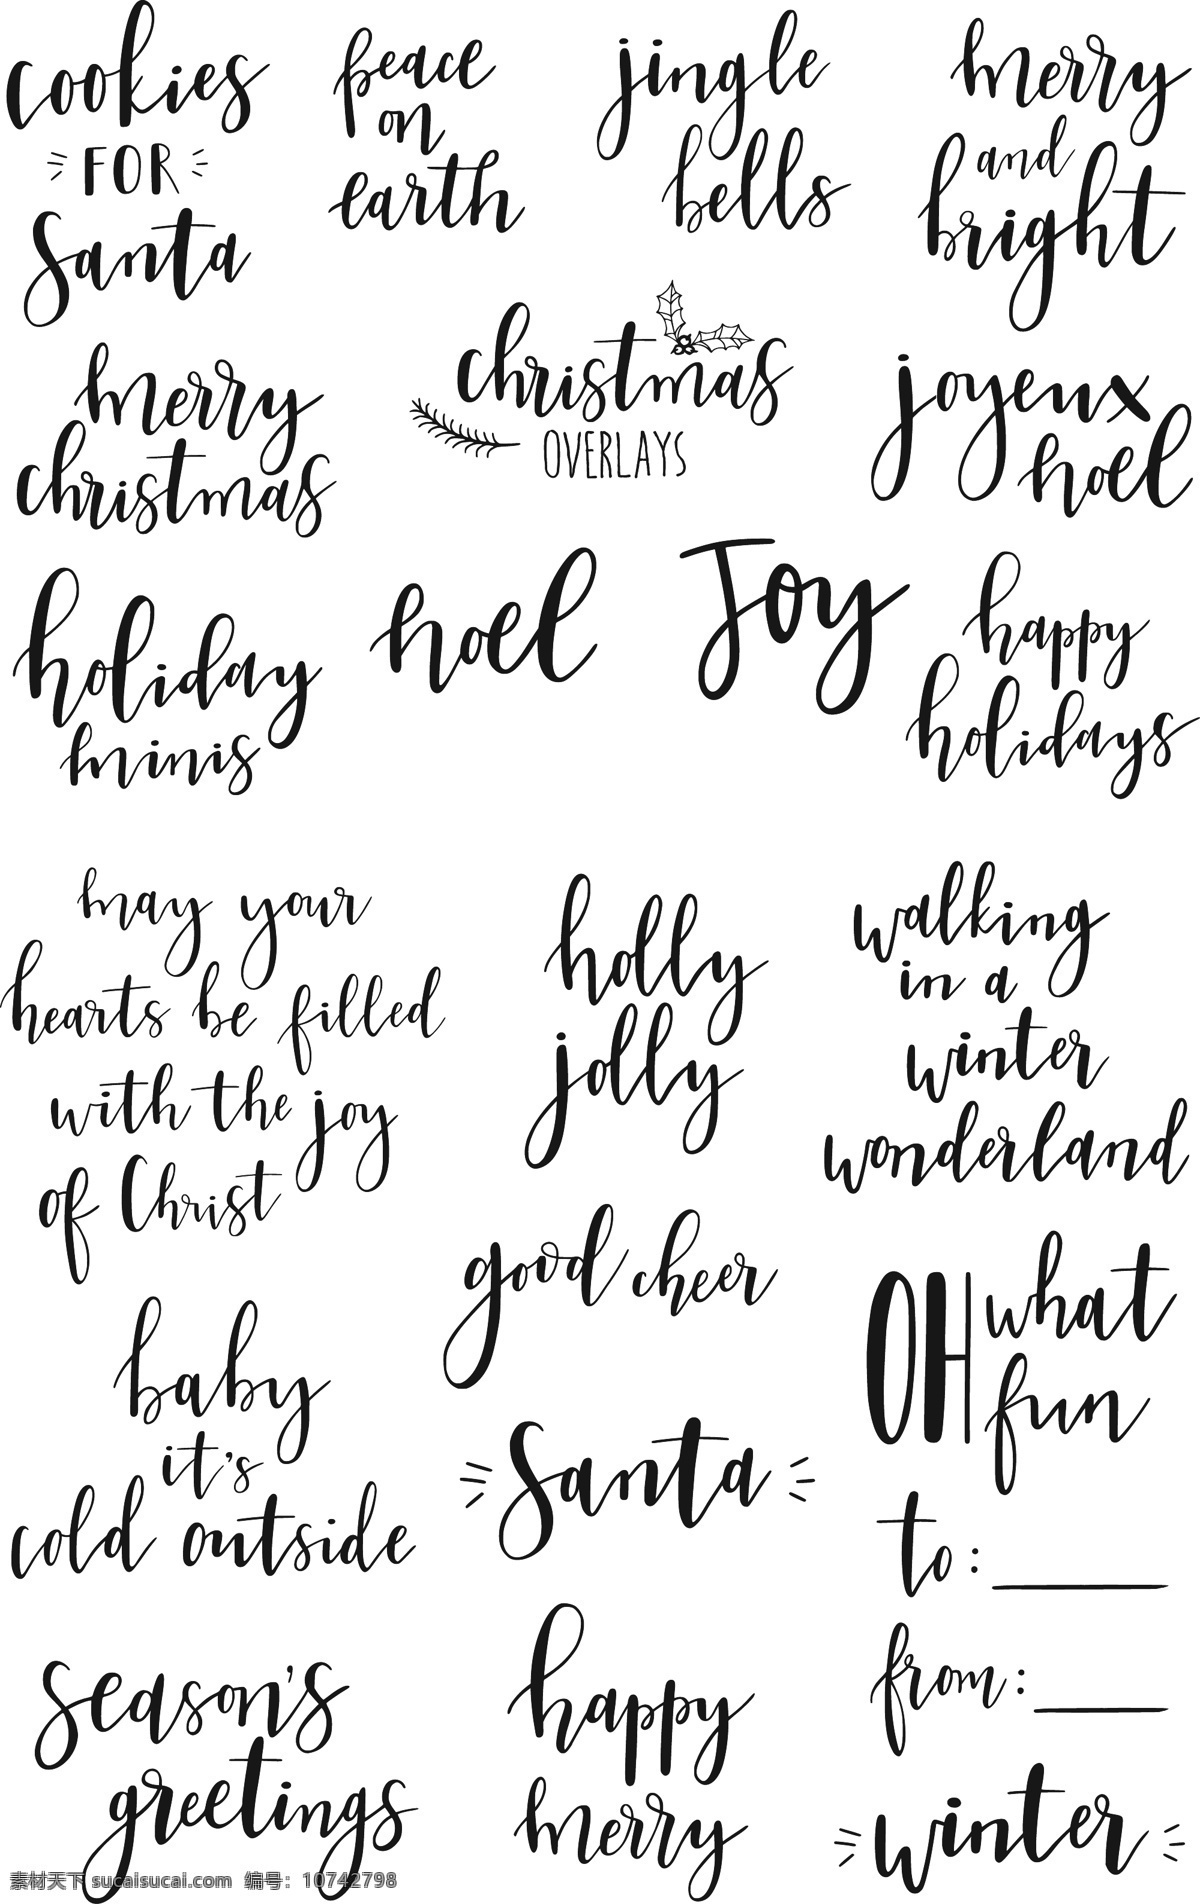 cookies
FOR
Santa
peace
on
earth
jingle
bells
merry
and
bright
merry
christmas
christmas
OVERLAYS
joyeux
noel
holiday
minis
noel
Joy
happy
holidays
may your
hearts be filled
with the joy
of Christ
holly
jolly
walking
in a
winter
wonderland
good cheer
OH what
fun
baby
it's
cold outside
Santa
to:
from:
season's
greetings
happy
merry
winter
素材天下 sucaisucai.com 编号：10742798